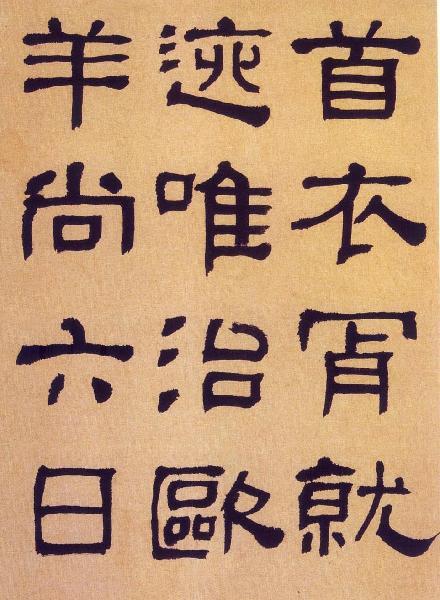 首衣肎就
迹唯治歐
羊尚六日